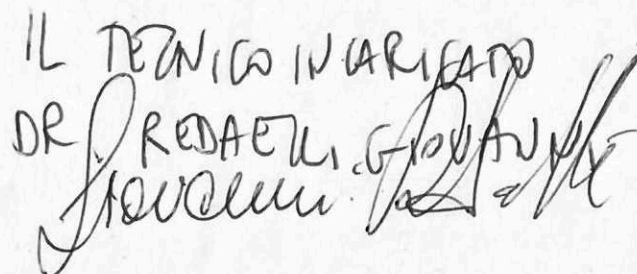 IL TECNICO INCARICATO
DR REDAELLI GIOVANNI
Giovanni Redaelli